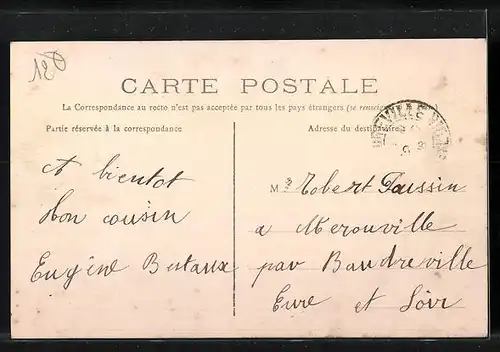 120
CARTE POSTALE
La Correspondance au recto n'est pas acceptée par tous les pays étrangers (se renseigner
Partie réservée à la correspondance
Adresse du destinataire
A bientot
Mon cousin
Eugène
Mr Robert Paussin
a Merouville
par Baudreville
Eure et Loir